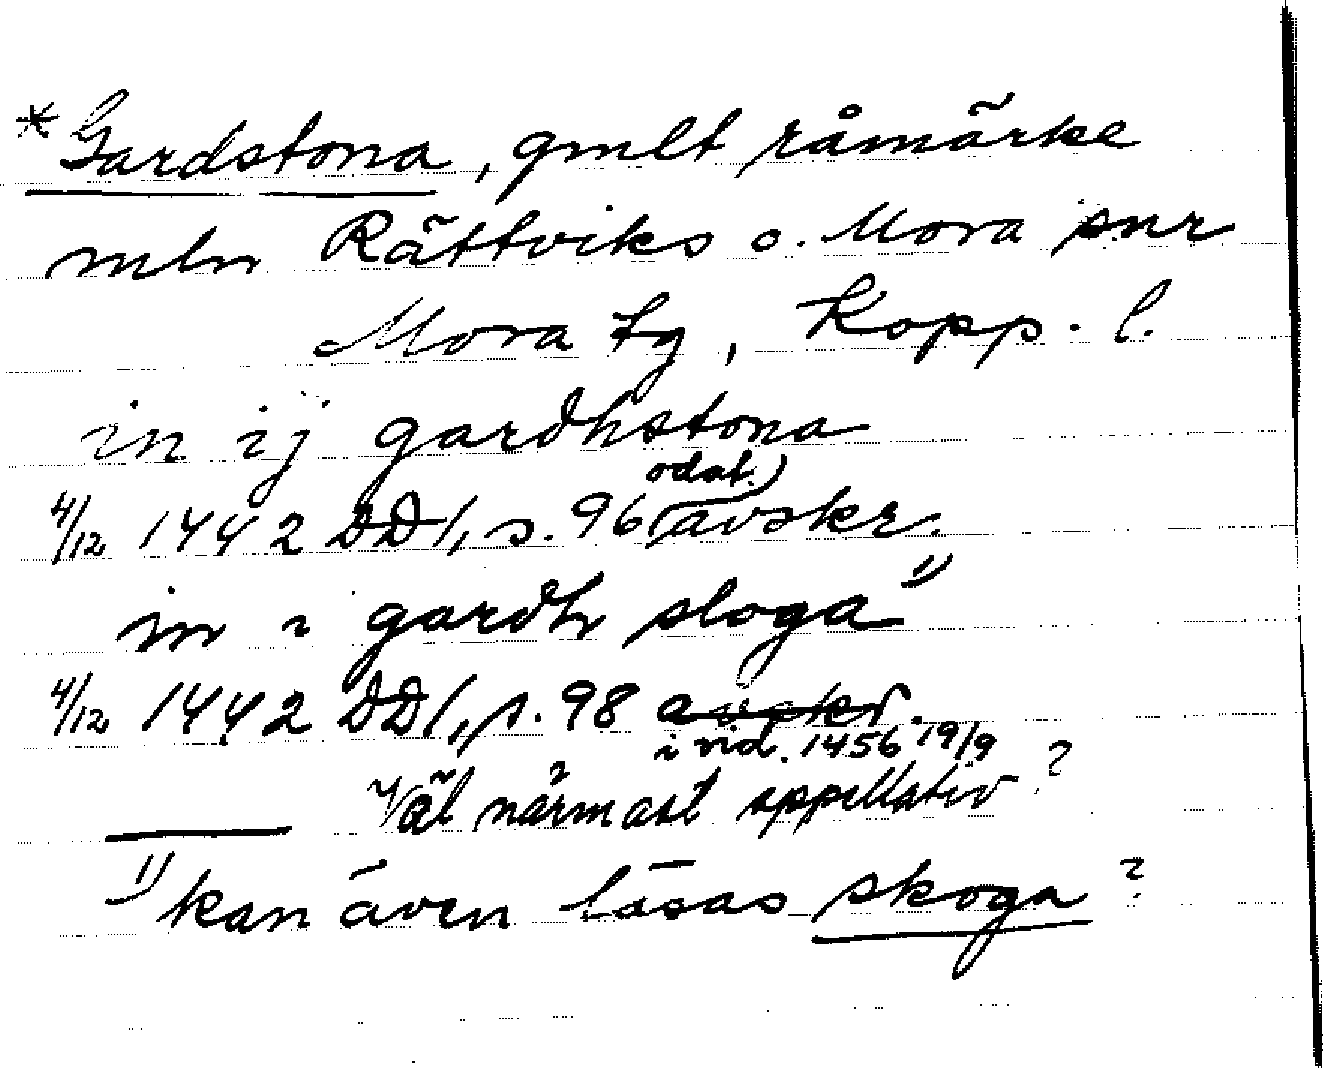 *Gardstona, gmlt råmärke
mln Rättviks o. Mora snr
Mora tg, Kopp. l.
in ij gardhstona
4/12 1442 DD 1, s. 96 (odat.) avskr.
in i gardh sloga 1)
4/12 1442 DD 1, s. 98 avskr.
i vid. 1456 19/9
Väl närmast appellativ ?
1) kan även läsas skoga ?